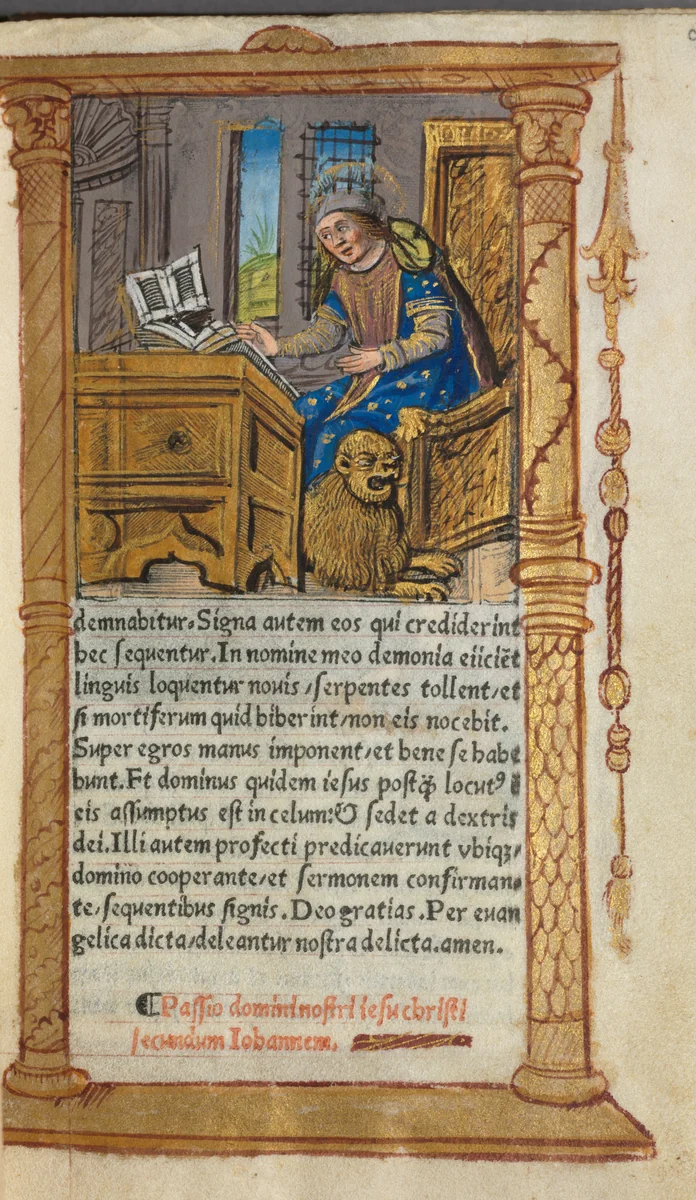 demnabitur. Signa autem eos qui crediderint
hec sequentur. In nomine meo demonia eiiciẽt
linguis loquentur nouis / serpentes tollent / et
si mortiferum quid biberint / non eis nocebit.
Super egros manus imponent / et bene se habe
bunt. Et dominus quidem iesus postq̃ locutꝰ
eis assumptus est in celum: & sedet a dextris
dei. Illi autem profecti predicauerunt vbiqꝫ /
domino cooperante / et sermonem confirman
te / sequentibus signis. Deo gratias. Per euan
gelica dicta / deleantur nostra delicta. amen.
¶ Passio domini nostri iesu christi
secundum Iohannem.